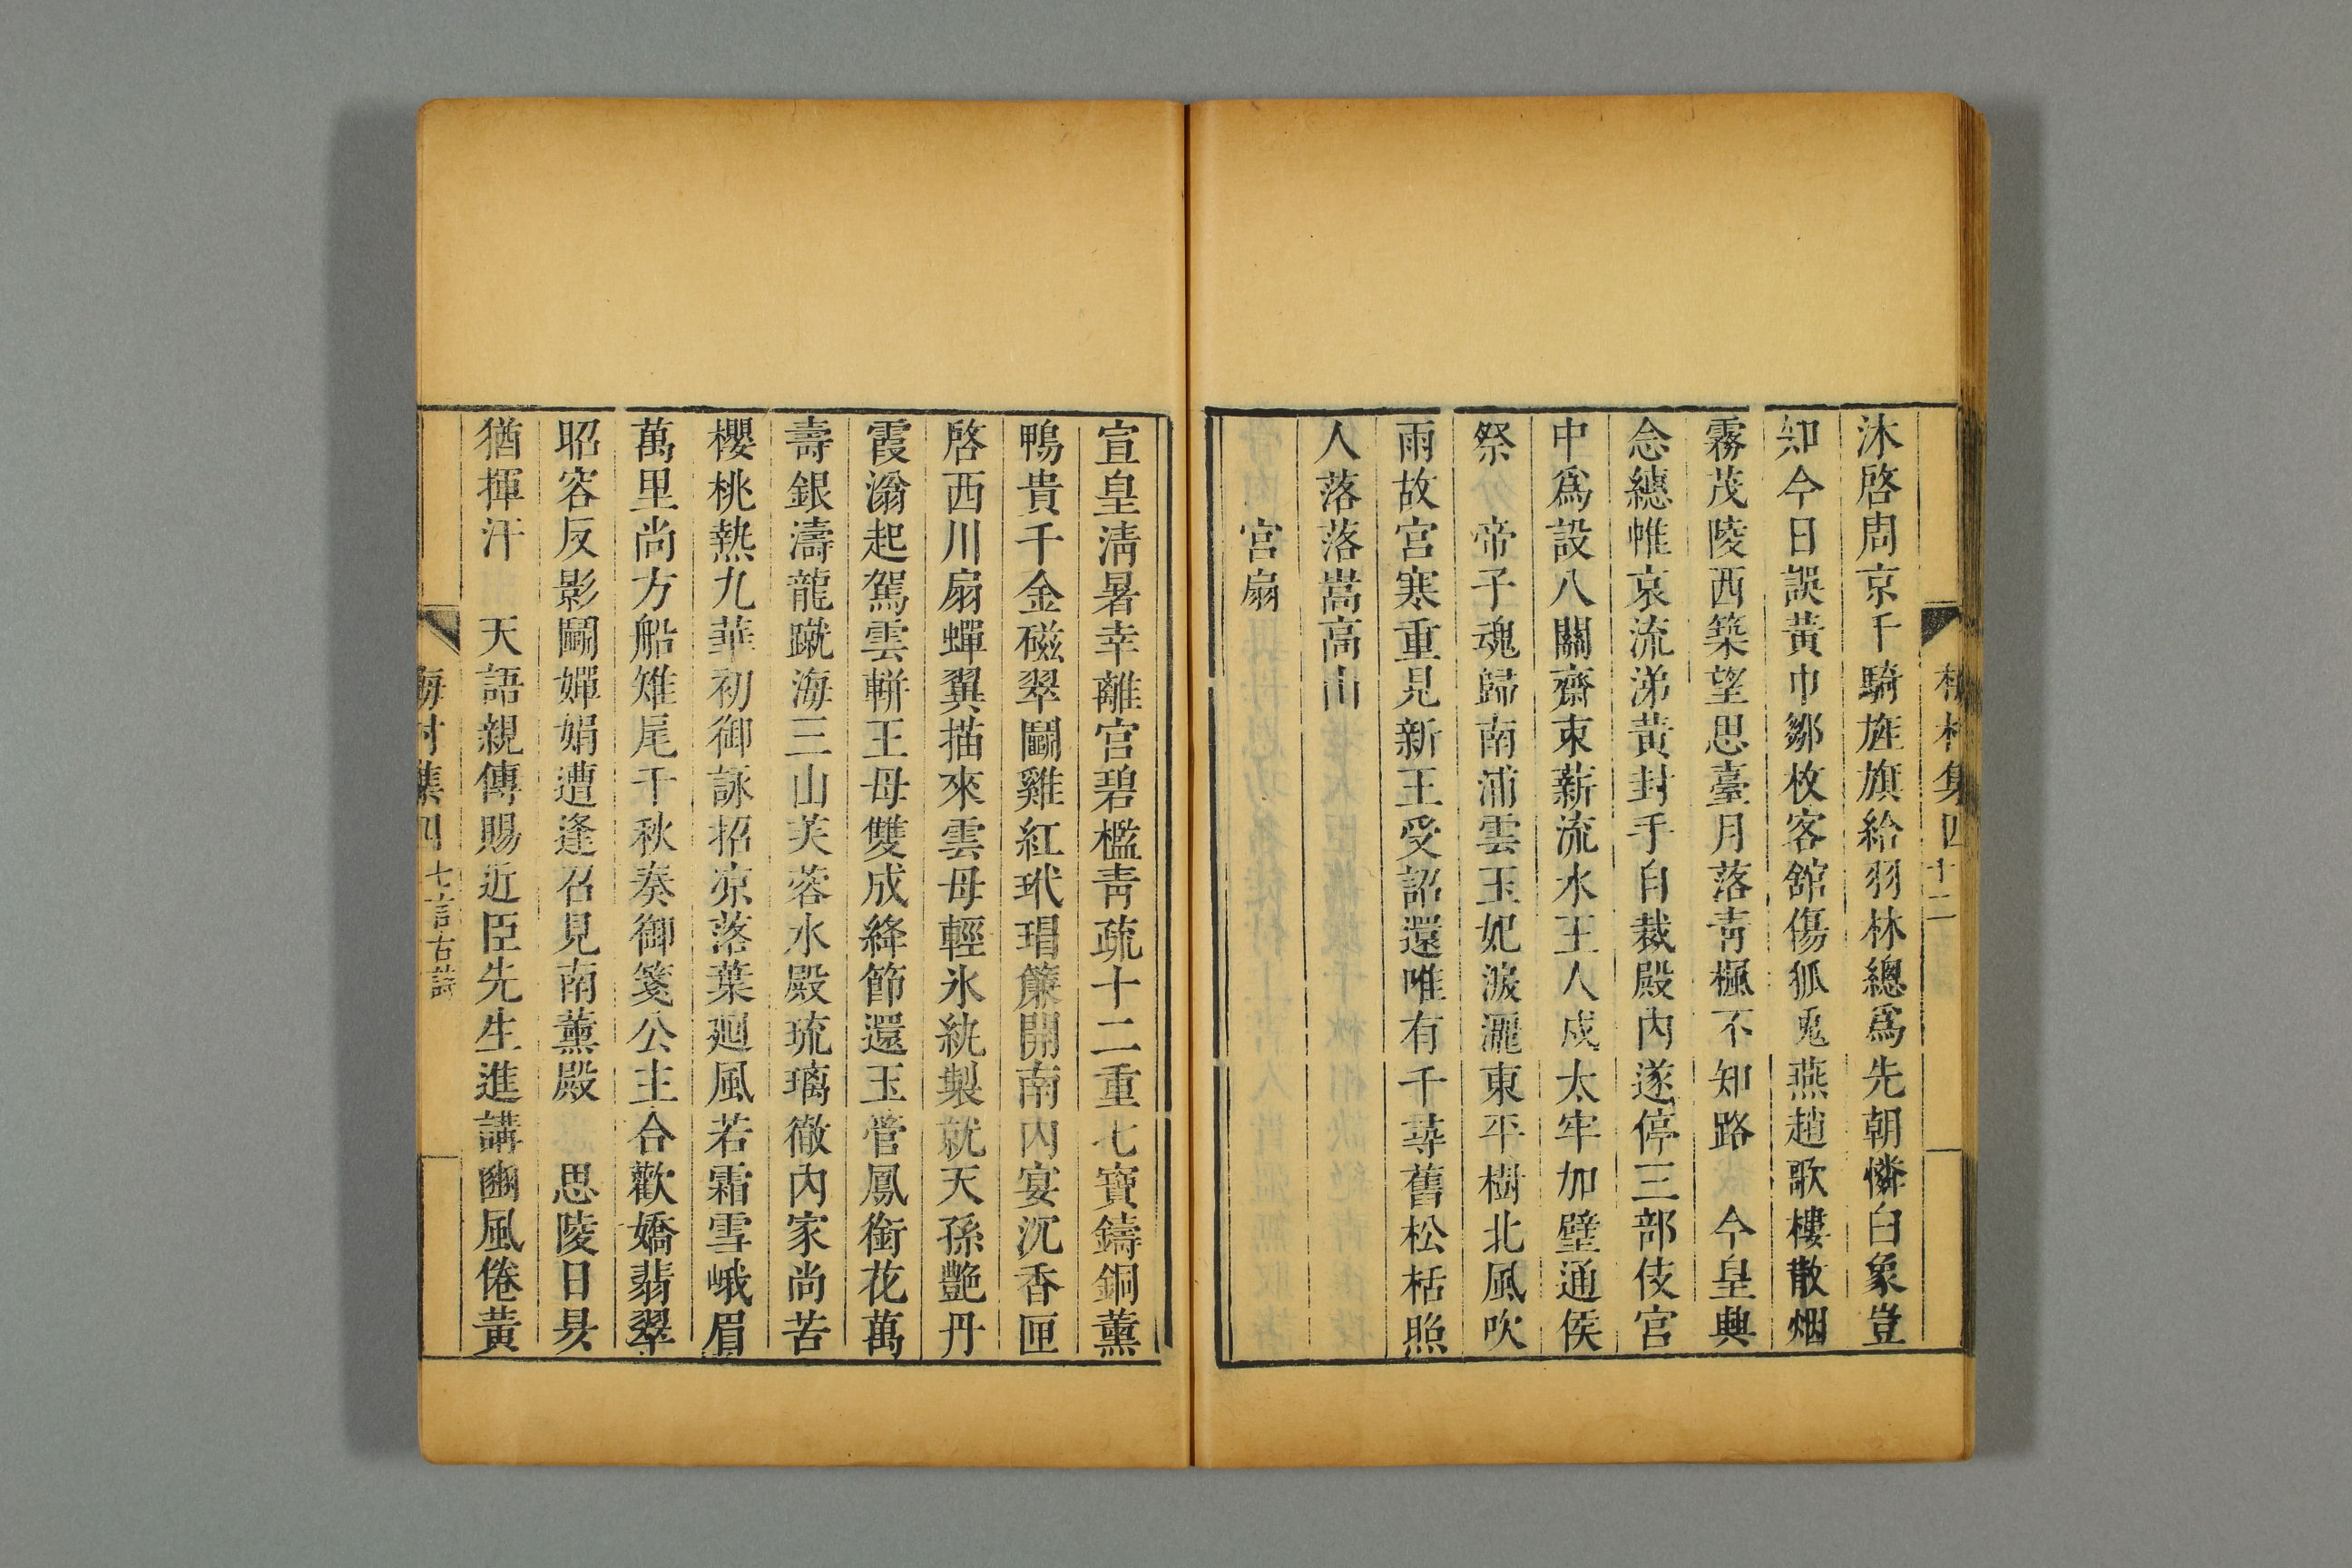 村集四 十二
沐啓周京千騎旌旗給羽林總爲先朝憐白象豈
知今日誤黃巾鄒枚客舘傷狐兎燕趙歌樓散烟
霧茂陵西築望思臺月落青楓不知路 今皇興
念繐帷哀流涕黃封手自裁殿內遂停三部伎宮
中爲設八關齋束薪流水王人戍太牢加璧通侯
祭 帝子魂歸南浦雲玉妃淚灑東平樹北風吹
雨故宮寒重見新王受詔還唯有千尋舊松栝照
人落落嵩高山
宮扇
宣皇淸暑幸離宮碧檻靑疏十二重七寶鑄銅薰
鴨貴千金磁翠鬭雞紅玳瑁簾開南內宴沉香匣
啓西川扇蟬翼描來雲母輕氷紈製就天孫艶丹
霞滃起駕雲軿王母雙成絳節還玉管鳳銜花萬
壽銀濤龍蹴海三山芙蓉水殿琉璃徹內家尚苦
櫻桃熱九華初御詠招凉落葉廻風若霜雪峨眉
萬里尚方船雉尾千秋奏御箋公主合歡嬌翡翠
昭容反影鬭嬋娟遭逢召見南薰殿 思陵日昃
猶揮汗 天語親傳賜近臣先生進講豳風倦黃
梅村集四 七言古詩